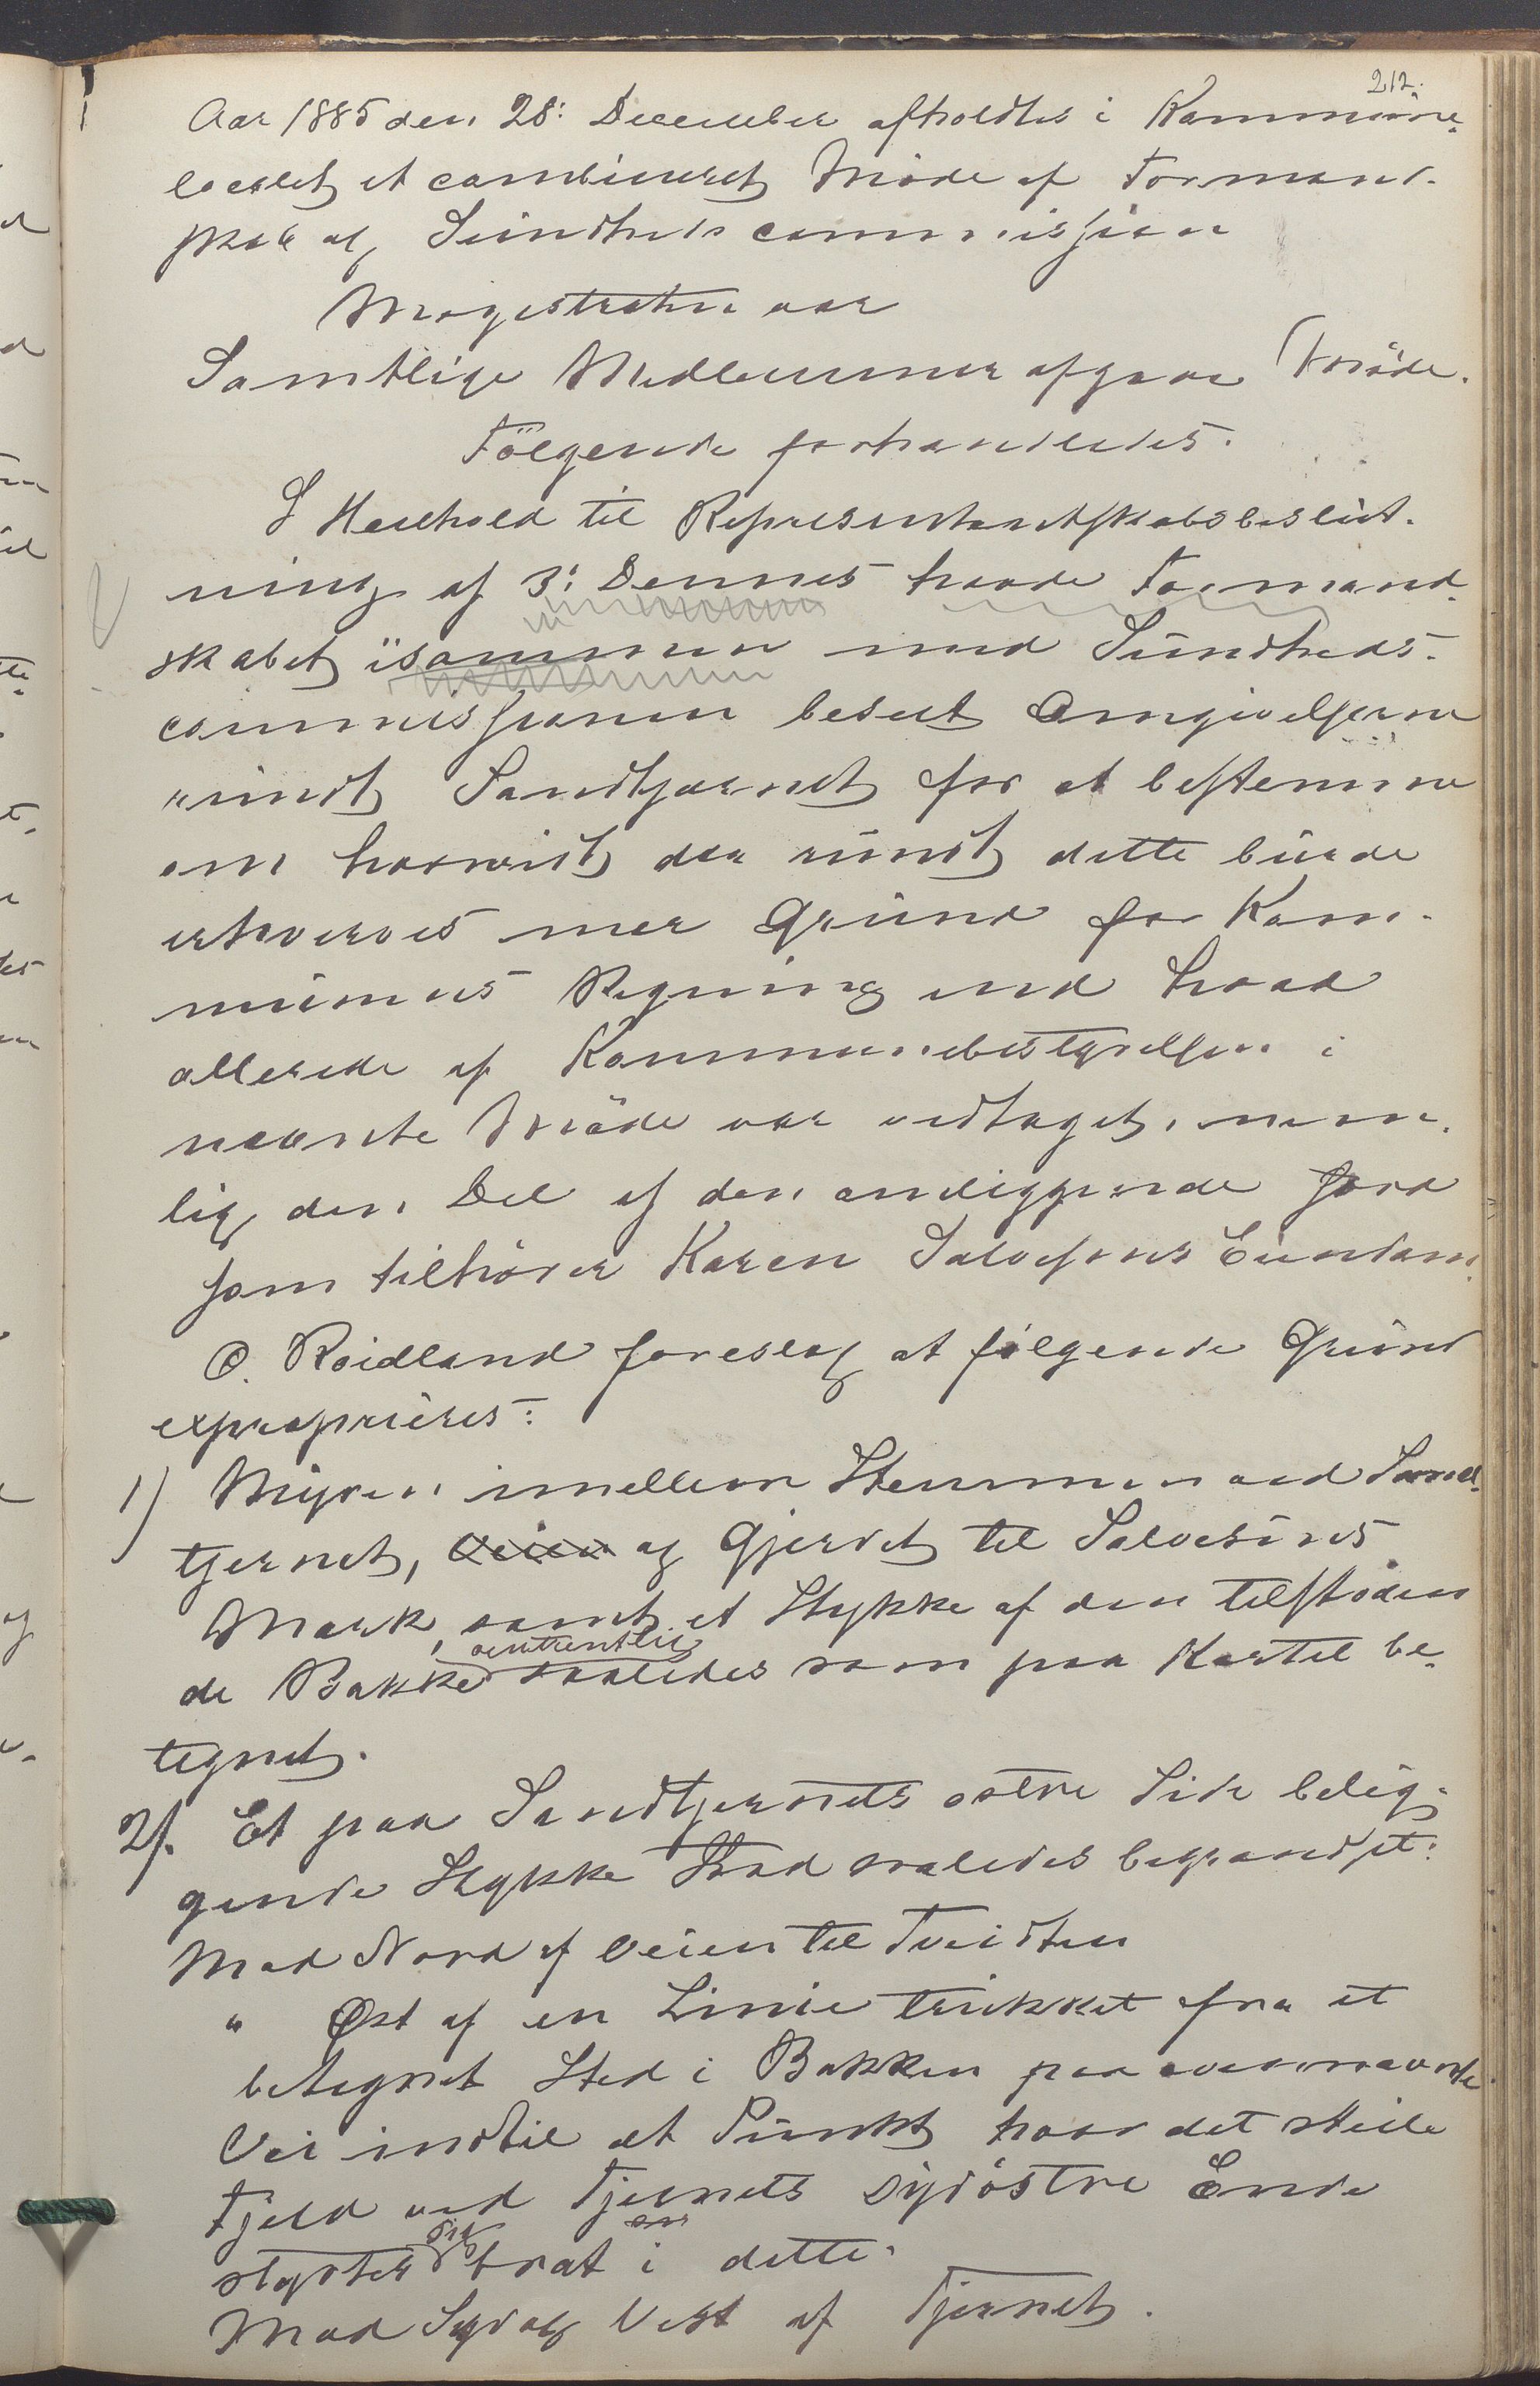 212.
Aar 1885 den 28: December afholdtes i Kommune-
localet et combineret Møde af Formand-
skab og Sundhedscommission
Magistraten var
Samtlige Medlemmer afgave Møde.
Følgende forhandledes.
I Henhold til Repræsentantskabsbeslut-
ning af 3: Dennes havde Formand-
skabet isammen med Sundheds-
commissionen beseet Omgivelserne
rundt Sandtjernet for at bestemme
om hvorvidt der rundt dette burde
erhverves mer Grund for Kom-
munens Regning end hvad
allerede af Kommunebestyrelsen i
nævnte Møde var vedtaget, nem-
lig den Del af den omliggende Jord
som tilhører Karen Salvesens Eiendom.
O. Roidland foreslog at følgende Grund
exproprieres:
1) Myren imellem Stemmen ved Sand-
tjernet, Veien og Gjerdet til Salvesens
Mark, samt et Stykke af den tilstøden
de Bakke omtrentlig saaledes som paa Kartet be-
tegnet.
2). Et paa Sandtjernets østre Side belig-
gende Stykke Land saaledes begrændset:
Mod Nord af Veien til Tveidten
" Øst af en Linie trukket fra et
betegnet Sted i Bakken paa ovennævnte
Vei indtil et Punkt hvor det steile
Fjeld ved Tjernets sydøstre Ende
styrter sig brat i dette.
Mod Syd og Vest af Tjernet.